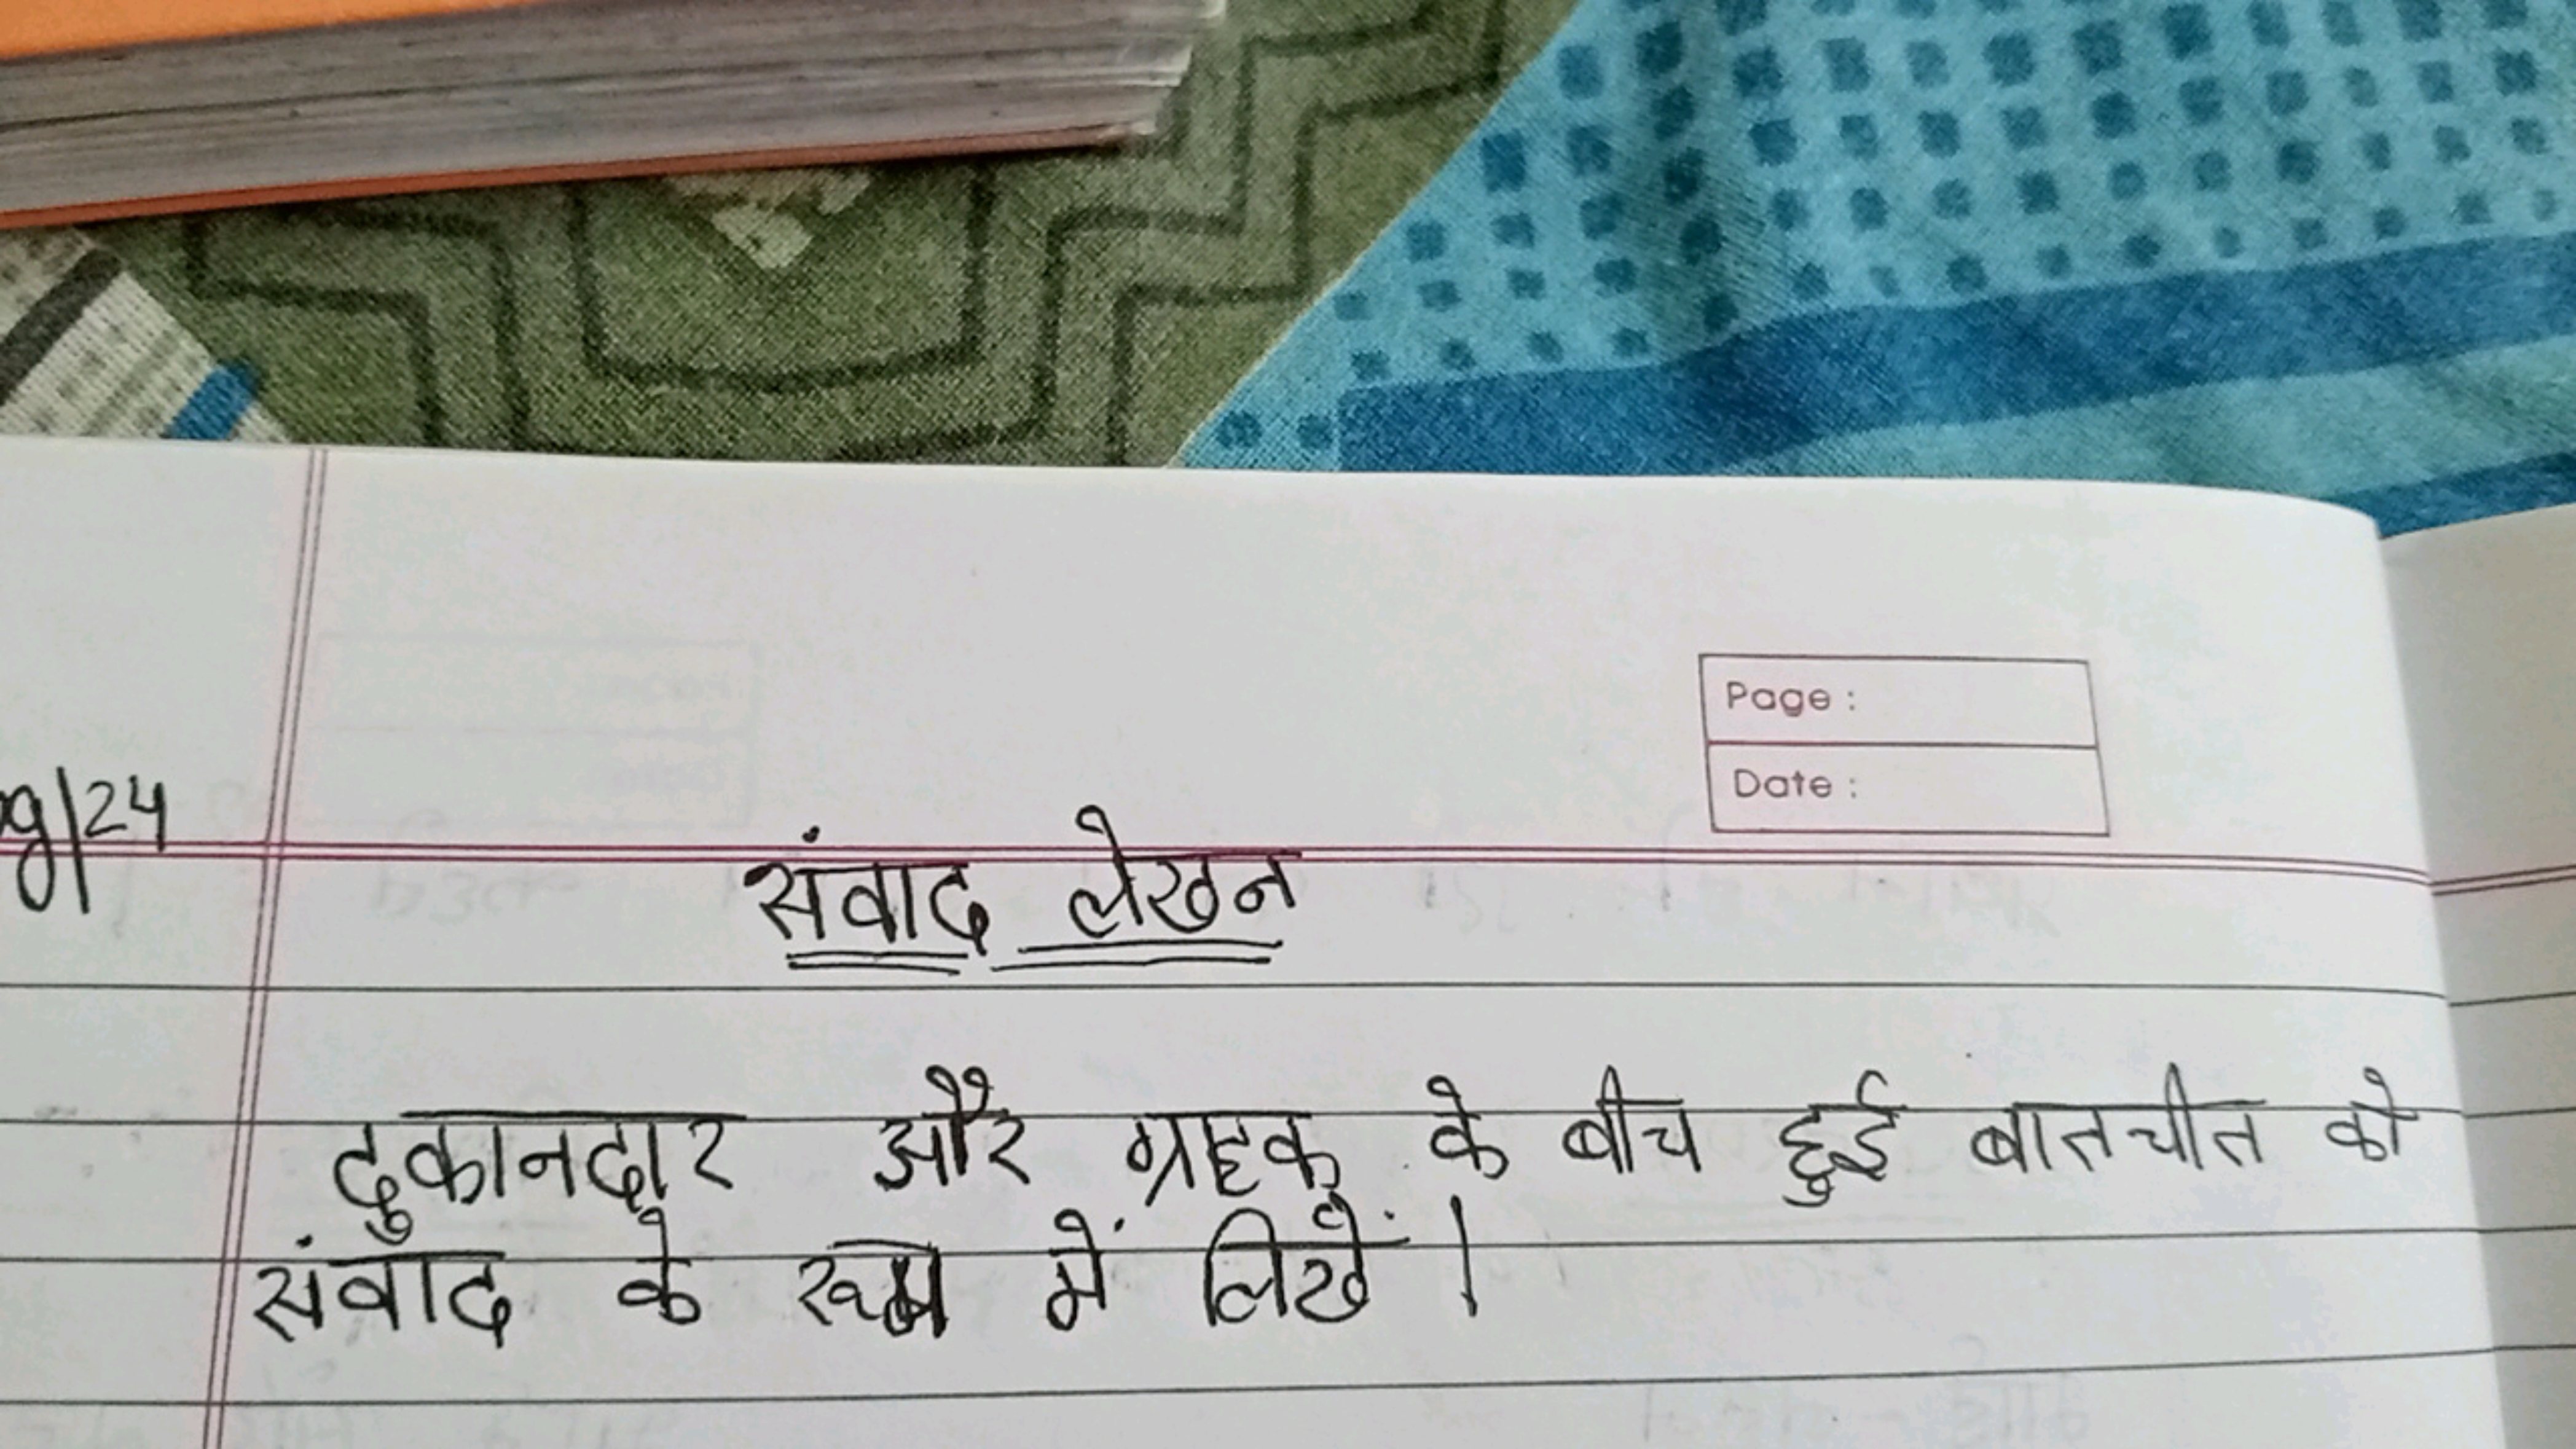 Page :
Date :
g/24
संवाद लेखन
दुकानदार और ग्राहक के बीच हुई बातचीत को
संवाद के रूप में लिखें।